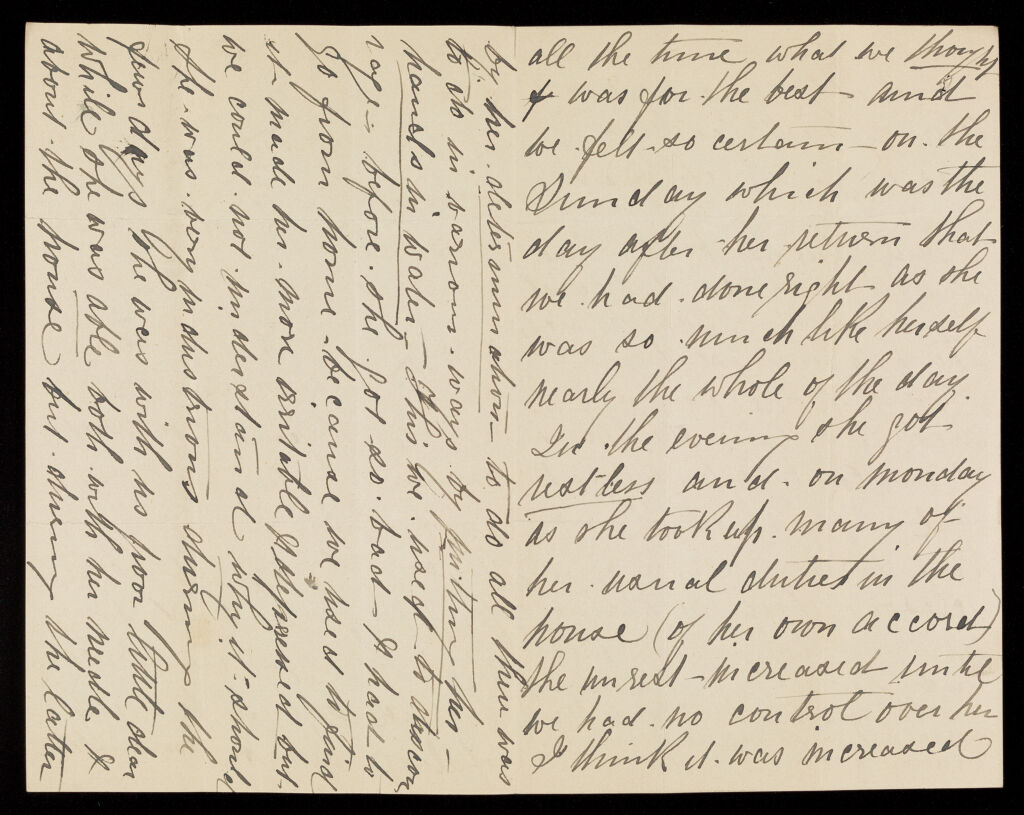 all the time what we thought
was for the best – and
we felt so certain – on the
Sunday which was the
day after her return that
we had done right as she
was so much like herself
nearly the whole of the day.
In the evening she got
restless and on monday
as she took up many of
her usual duties in the
house (of her own accord)
the unrest increased until
we had no control over her
I think it was increased
by her determination to do all there was
to do in various ways by putting her
hands in water – This we used to
rage – before she got so bad – & had to
go from home – because we used to find
it made her more irritable & depressed but
we could not understand why it should
She was very industrious during the
few days she was with us poor little dear
while she was able both with her needle &
about the house but during the latter